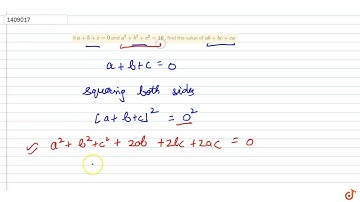 1409017
If a + b + c = 0 and a² + b² + c² = 16, find the value of ab + bc + ca
a + b + c = 0
Squaring both sides
[a + b + c]² = 0²
a² + b² + c² + 2ab + 2bc + 2ac = 0